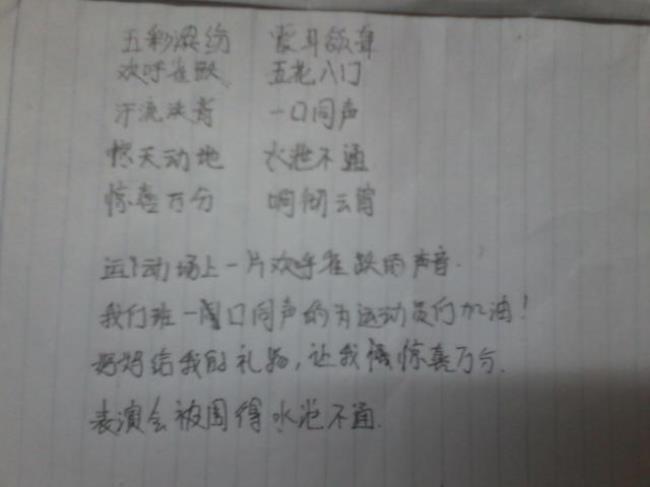 五彩缤纷 震耳欲聋
欢呼雀跃 五花八门
汗流浃背 一口同声
惊天动地 水泄不通
惊喜万分 响彻云霄
运动场上一片欢呼雀跃的声音.
我们班一口同声的为运动员们加油!
好好给我的礼物,让我惊喜万分.
表演会被围得水泄不通.